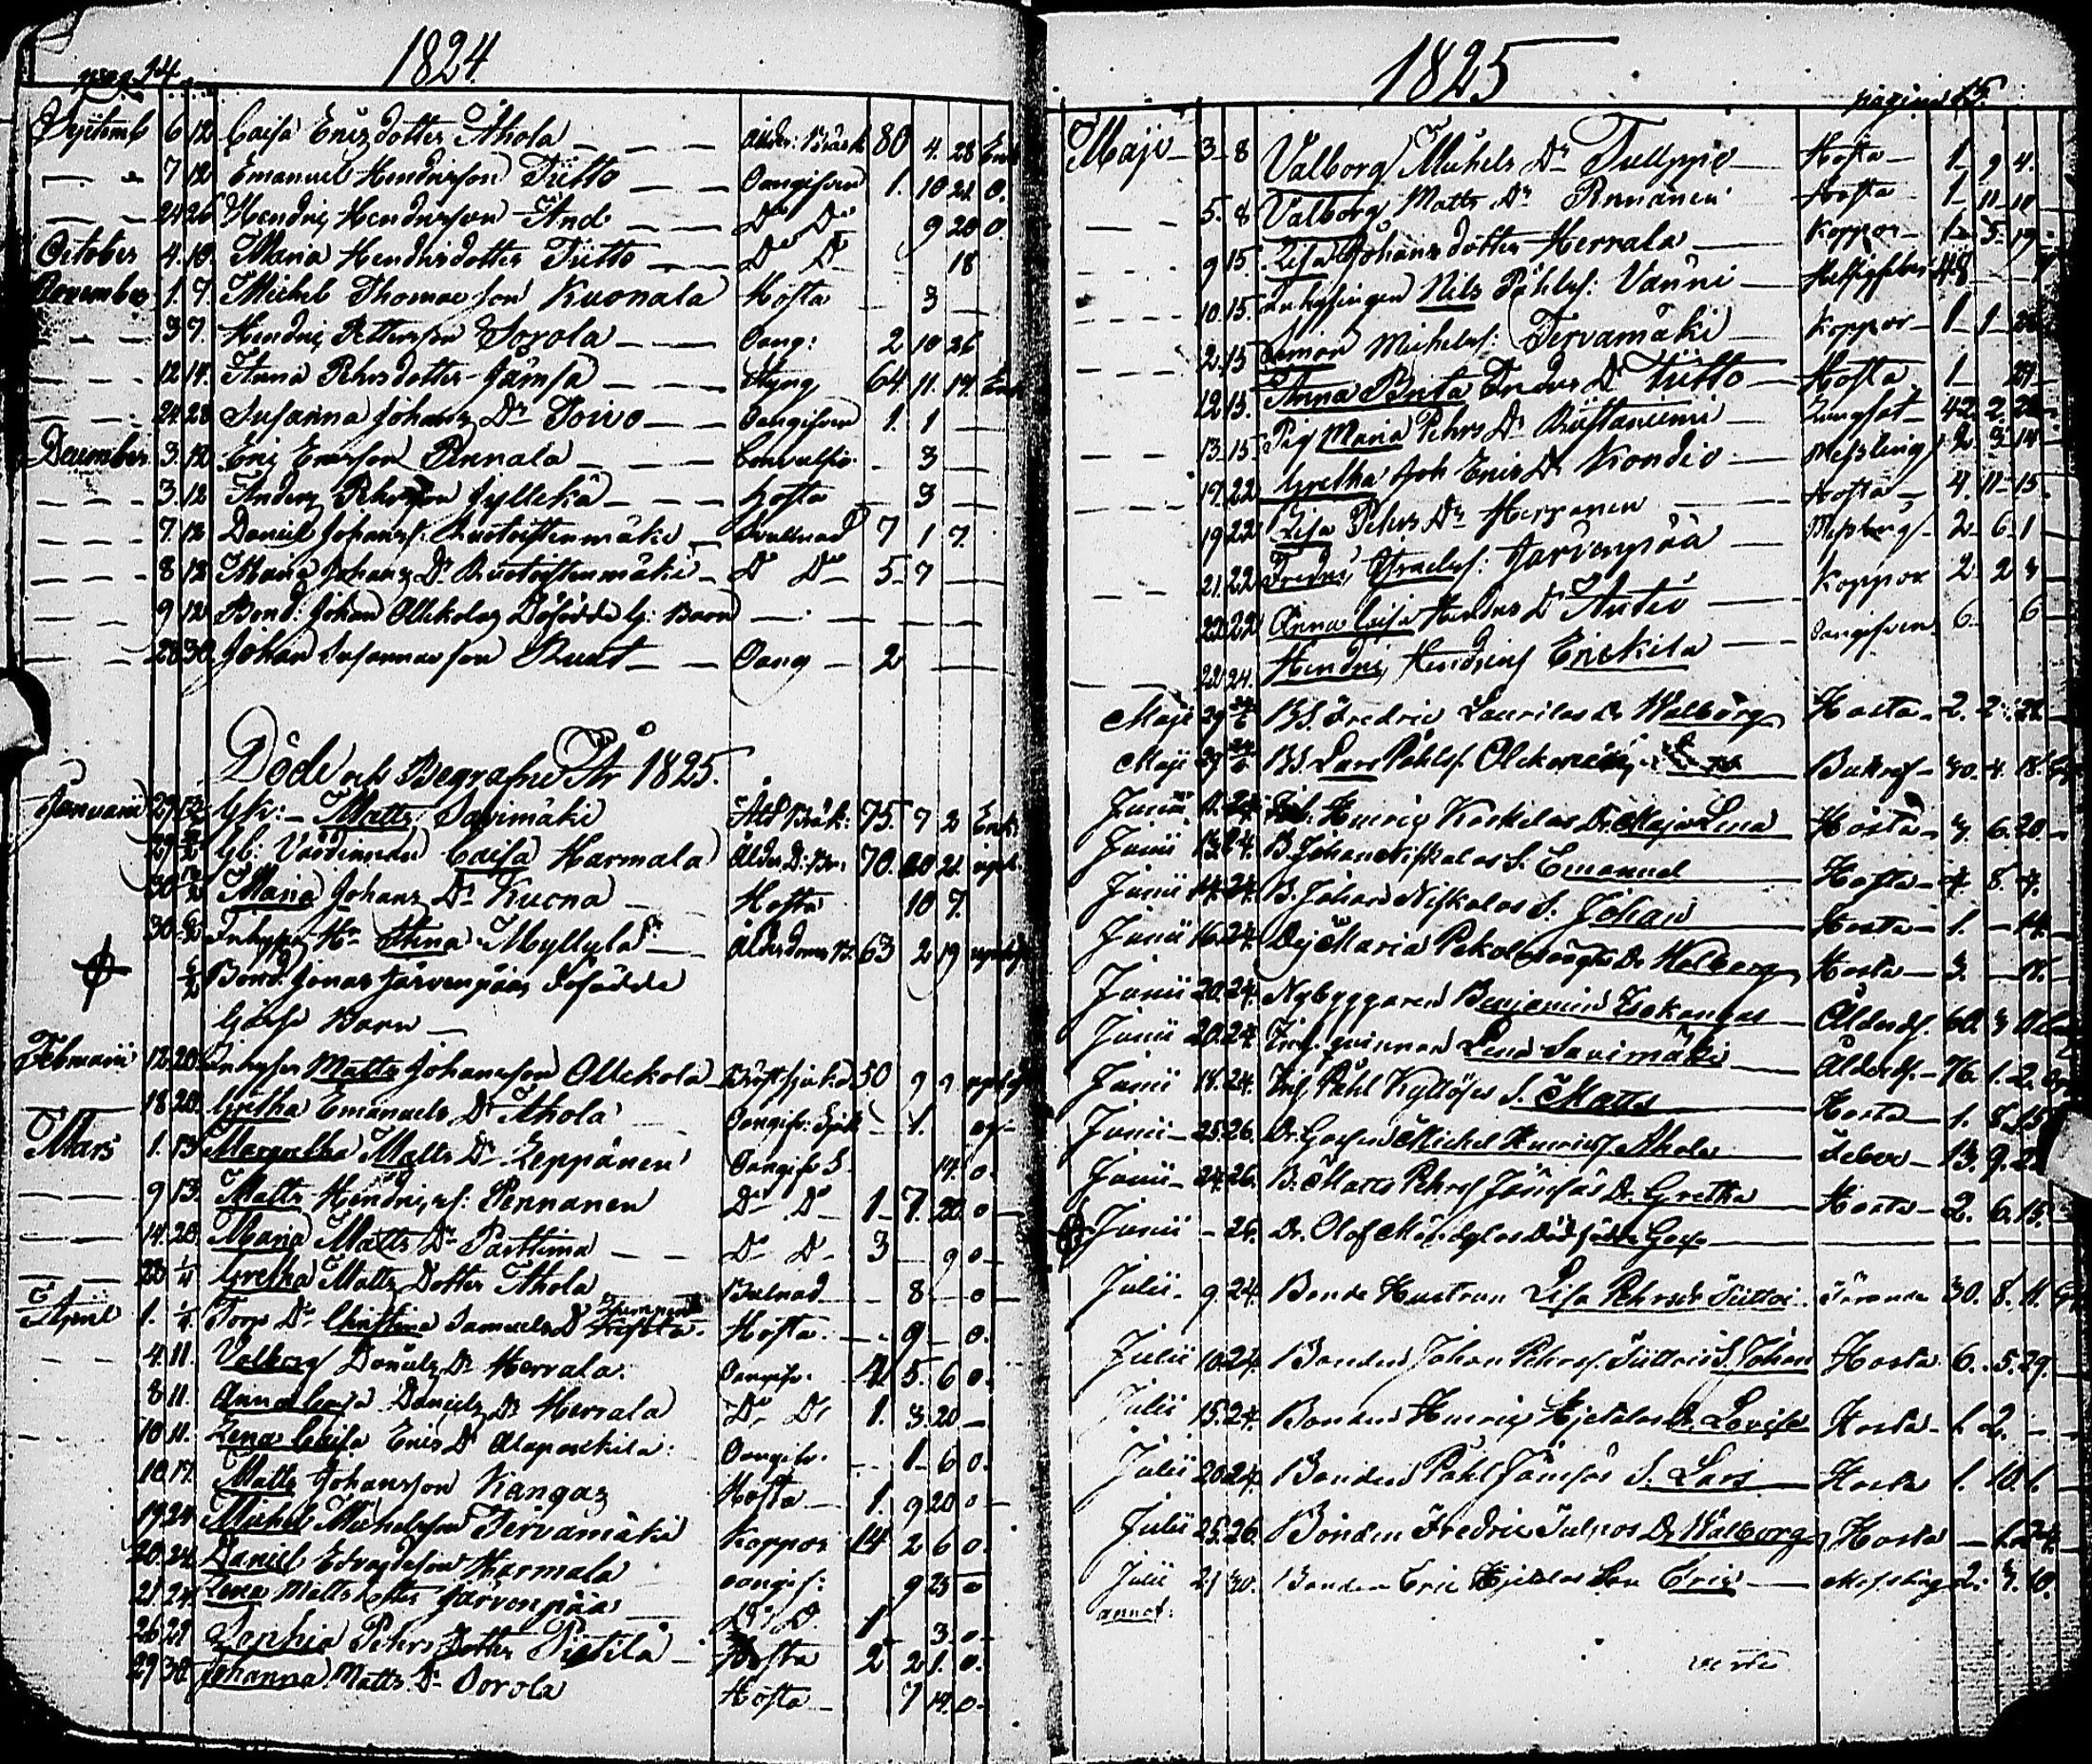 pag 14.
1824
Septemb 6 12 Caisa Ericsdotter Ahola Ålder: Bräck 80 4. 28
7 12 Emanuel Hendricsson Tiitto Oangifven 1. 10 21 0.
24 26 Hendric Hendricsson And Do Do 9 20 0.
October 4. 10. Maria Hendricsdotter Tiitto Do Do 18
November 1. 7. Michel Thomasson Kuonala Hosta 3
3 7. Hendric Pettersson Sorola Oang: 2 10 26
12 14. Anna Pehrsdotter Jämsä Styng 64. 11. 14.
24. 28 Susanna Johans Dr Toivo Oangifven 1. 1
December 3. 12 Eric Ericsson Annala Convulsio 3
3. 12 Anders Pehrsson Jyllikä Hosta 3
7. 12 Daniel Johans: Svullnad 7 1 7.
8 12 Maria Johans Dr Do Do 5. 7
9 12 Bond: Johan Ollikalas Dödfödde G: Barn
28 30. Johan Susannas son Ruut Oang 2
Döde och Begrafne År 1825.
Januarii 29 Matts Savimäki Åld Bräk: 75. 7 2
29 Gl: Värdinnan Caisa Harmala Ålder D: Br: 70. 10 21.
30 Maria Johans Dr Kuona Hosta 10 7.
30. Inhyses Hn Anna Myllylä Ålderdoms 63 2 19
Bond: Jonas Järvenpääs Dödfödde
Gosse Barn
Februarii 12 20. Inhyses Matts Johansson Ollikola Bröstsjuka 50 9 9
18 20. Gretha Emanuels Dr Ahola Oangifv: Sjuk 1.
Mars 1. 13 Margretha Matts Dr Leppänen Oangifv S. 14. 0.
9 13. Matts Hendrics: Pennanen Do Do 1 7. 20. 0
14. 20. Maria Matts Dr Parttima Do Do 3 9 0
23 Gretha Matts Dotter Ahola Bulnad 8 0
April 1. Torp Dr Christina Samuels D Hosta. 9 0.
4. 11. Valborg Daniels Dr Herrala. Oangifv. 4. 5. 6 0.
8 11. Anna Caisa Daniels Dr Herrala Do Do 1. 3. 20
10 11. Lena Caisa Erics Dr Alapoikila: Oangifv. 1 6 0.
10. 17. Matts Johansson Kangas Hosta 1. 9 20 0
19. 24 Michel Michelsson Tervamäki Koppor 14 2 6 0.
20. 24. Daniel Harmala oangif: 9 25 0
21. 24. Lena Mattsdotter Järvenpää Do D. 1 3. 0
26 29 Sophia Pehrs Dotter Pietilä Hosta 2 2 1. 0.
29 30 Johanna Matts Dr Sorola Hosta 7 14. 0.
1825
pagina 15.
Maji 3 8 Valborg Michels Dr Tulppio Hosta 1 9 4.
5. 8 Valborg Matts Dr Pennanen Hosta 1 11 10
9 15. Lisa Johans dotter Herrala Koppor 1 5. 19
10. 15. Inhysingen Nils Påhls: Vänni 48
2. 15 Simon Michels: Tervamäki Koppor 1 1
12 15. Anna Brita Fredrics Dr Tiitto Hosta 1 27
13. 15. Pig Maria Pehrs Dr Lungsot 42 2 28
17. 22 Gretha Joh Erics Dr Kondio Messling 2. 3 14
19 22 Lisa Pehrs Dr Herranen Hosta 4. 11 15
21. 22 Fredric Israels: Järvenpää Messling 2 6 1
22 22 Anna Caisa Hendrics Dr Antio Koppor 2 2 3
22 24. Hendric Hendrics Erickila Oangifven 6 6
Maji 29 B S. Fredric Laurilas Dr Walborg Hosta 2. 2.
Maji 29 B S. Lars Påhls. 30. 4. 18.
Junii 24. Henric Koskelas Dr Maja Lena Hosta 3. 6. 20
Junii 24. B. Johan Niskalas S. Emanuel Hosta 4 8. 4.
Junii 14. 24. B. Johan Niskalas S. Johan Hosta 1. 14.
Junii 16. 24. Maria Dr Walborg Hosta 3. 18.
Junii 20. 24. Nybyggaren Benjamin Isokangas Ålderd. 60. 3
Junii 20. 24. Inh. qvinnan Lena Savimäki Ålderd. 76. 1. 2.
Junii 18. 24. Påhl Kyllöses S. Matts Hosta 1. 8. 15
Junii 25. 26. Michel Henricss. Ahola Feber 13. 9.
Junii 24. 26. B. Matts Pehrss Jämsäs Dr Gretha Hosta 2. 6. 15.
Junii 26. Dr. Olof Dödfödda Gosse
Julii 9. 24. Bonde Hustrun Lisa Pehrsdr Tiittoi 30. 8. 11.
Julii 10. 24. Bonden Johan Pehrss. Tiittois S. Johan Hosta 6. 5. 29.
Julii 15. 24. Bonden Henric Hjetalas Dr Lovisa Hosta 1. 2.
Julii 20. 24. Bonden Påhl Jämsäs S. Lars Hosta 1. 10. 1.
Julii 25. 26. Bonden Fredric Tulpos Dr Walborg Hosta 1. 24.
Julii 21 30. Bonden Eric Hjetalas Son Eric Messling 2. 3. 10.
annot:
verte